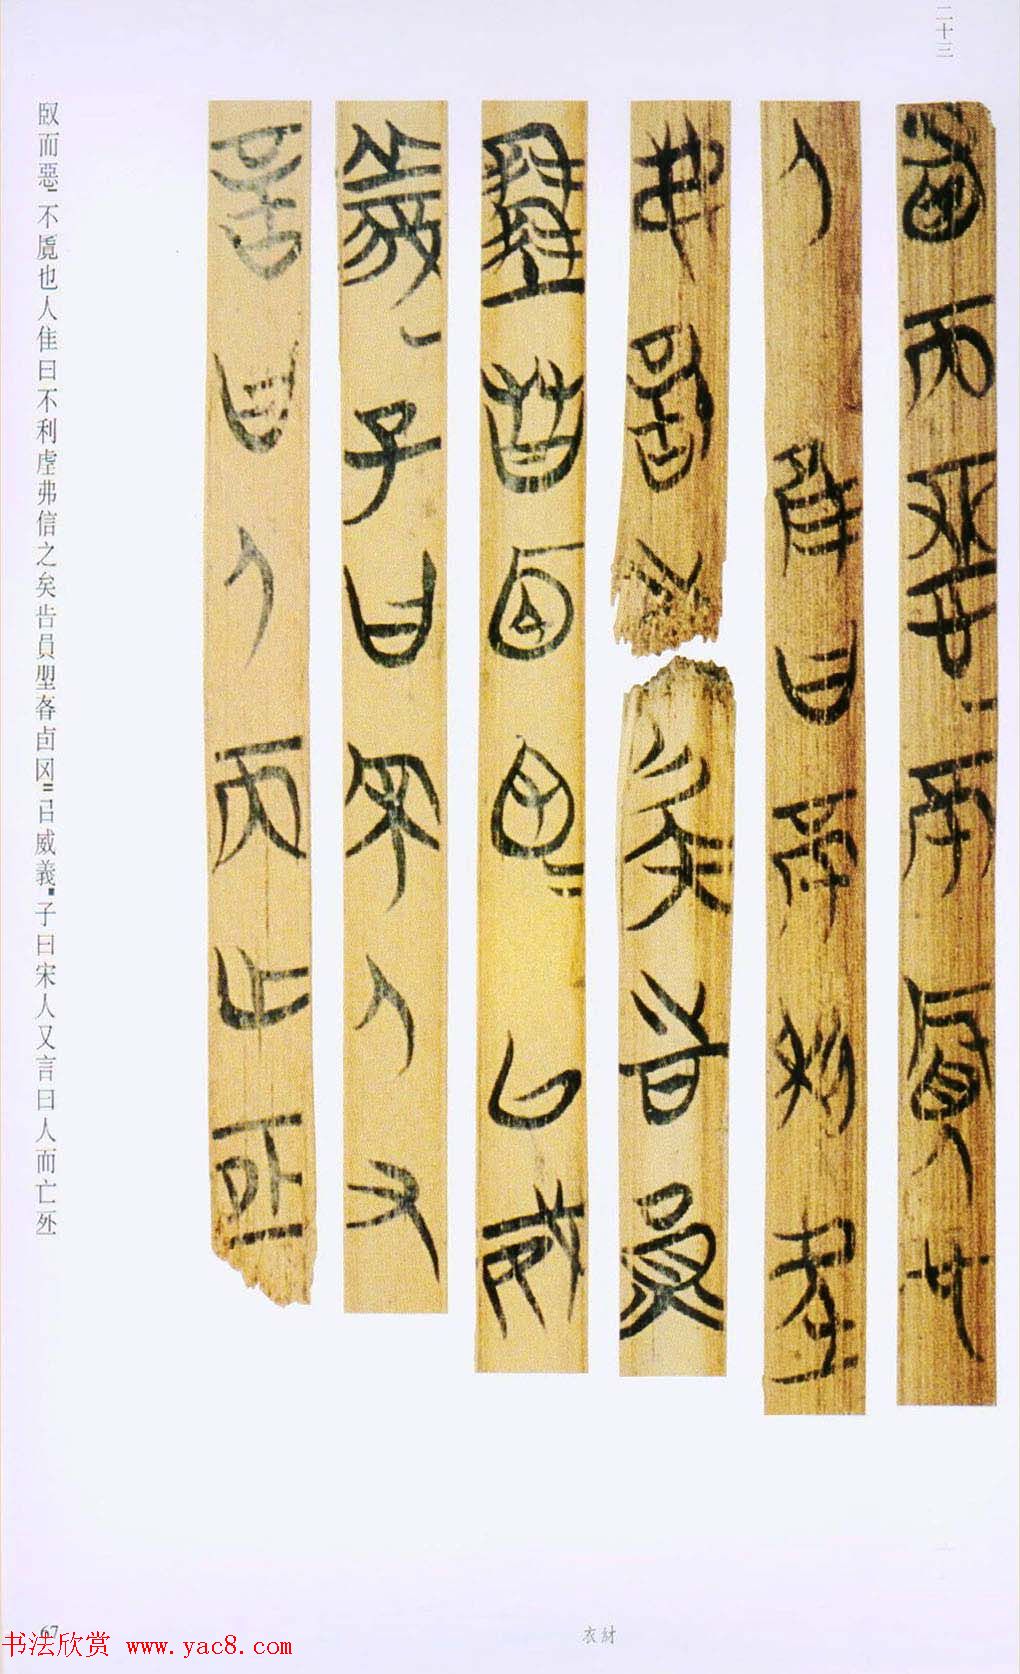 二十三
臤而惡=不厬也人隹曰不利虗弗信之矣告員塱㕛卣冈=㠯威義■子曰宋人又言曰人而亡死
衣紂
67
书法欣赏 www.yac8.com